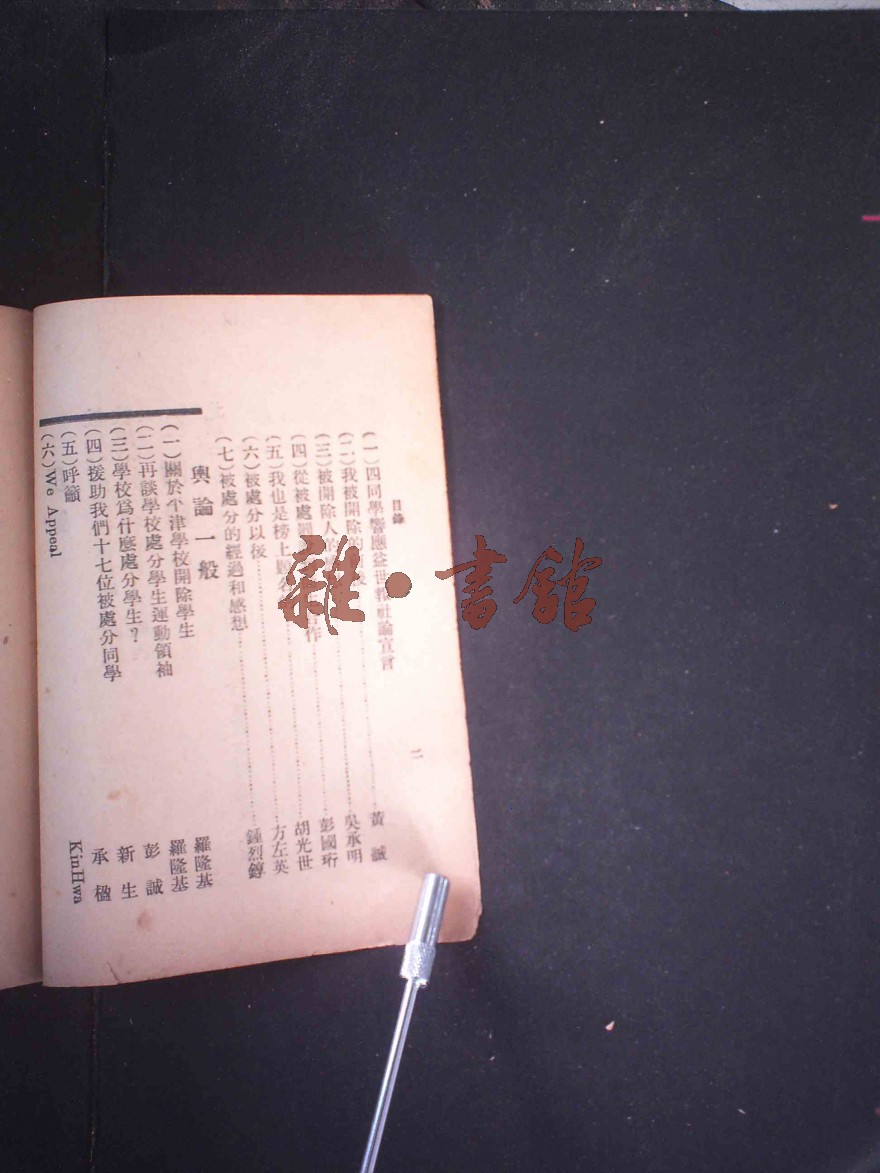 目錄
二
(一)四同學響應益世報社論宣言 黃誠
(二)我被開除的 吳承明
(三)被開除人的 作 彭國珩
(四)從被處 胡光世
(五)我也是榜上 名 方左英
(六)被處分以後
(七)被處分的經過和感想 鍾烈錞
輿論一般
(一)關於平津學校開除學生 羅隆基
(二)再談學校處分學生運動領袖 羅隆基
(三)學校爲什麽處分學生? 彭誠
(四)援助我們十七位被處分同學 新生
(五)呼籲 承楹
(六)We Appeal KinHwa
雜·書館